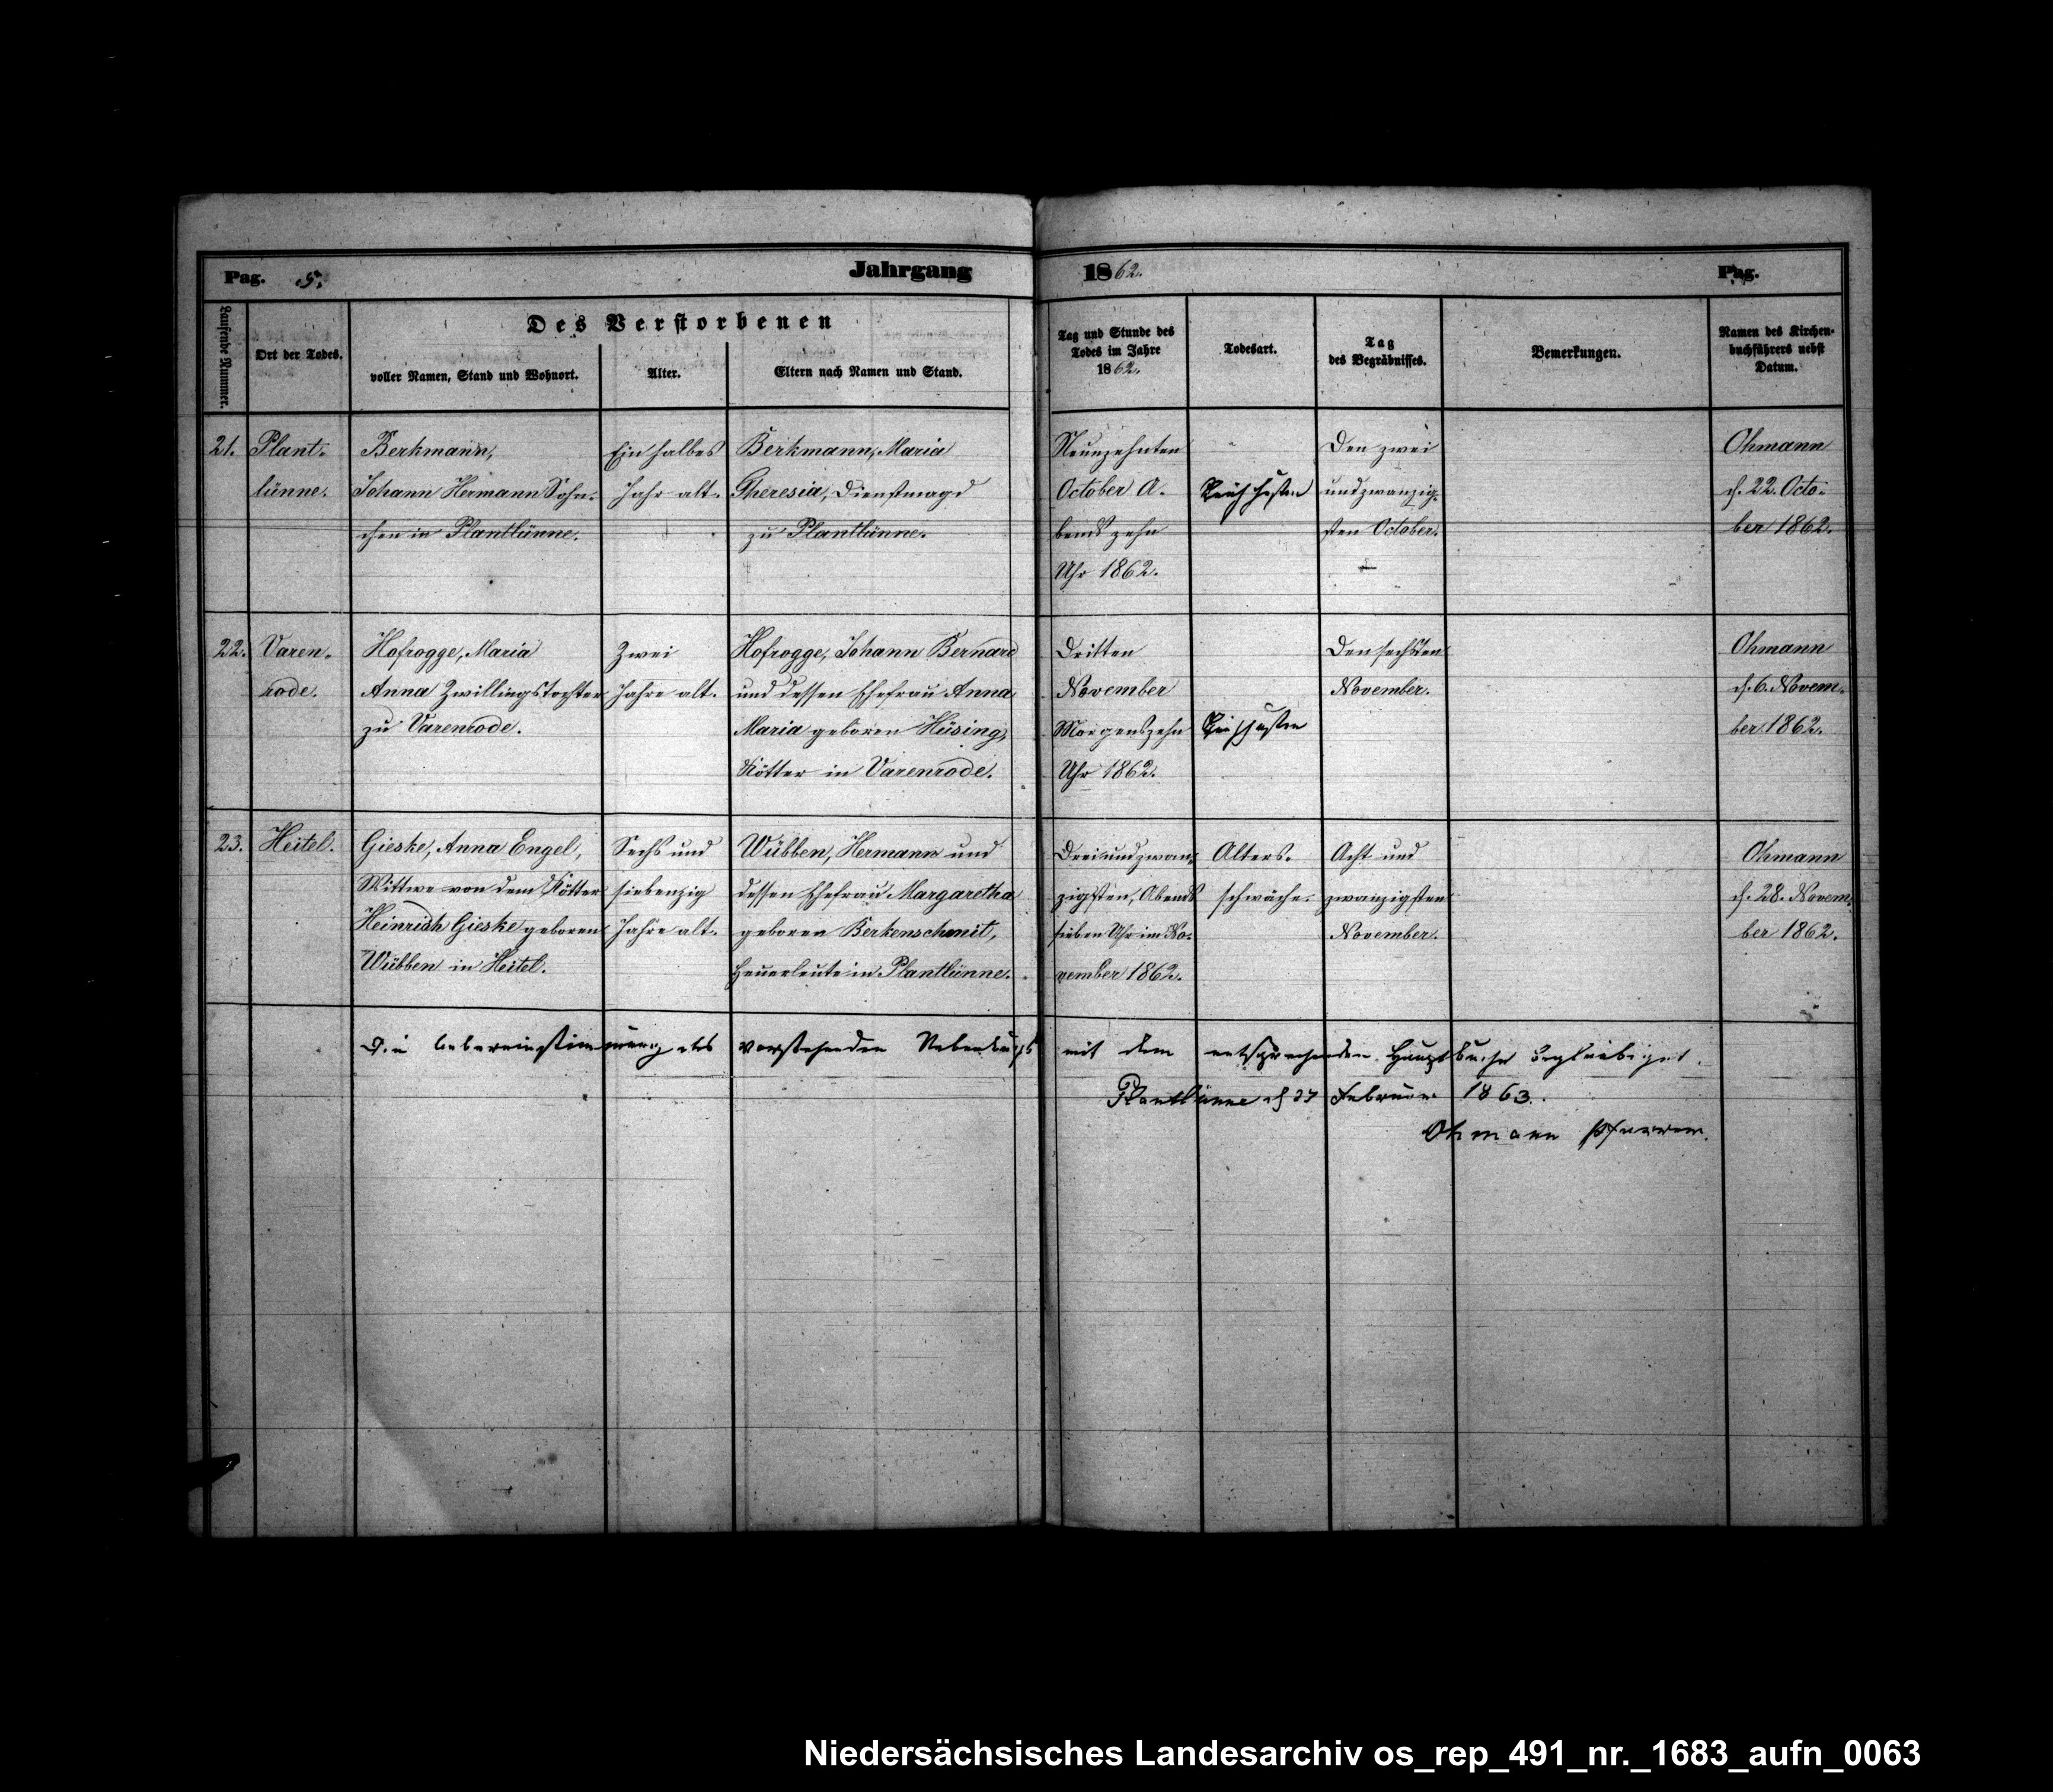 Pag. 5.
Jahrgang 1862.
Pag.
Laufende Nummer.
Ort der Todes.
Des Verstorbenen
voller Namen, Stand und Wohnort.
Alter.
Eltern nach Namen und Stand.
Tag und Stunde des
Todes im Jahre
1862.
Todesart.
Tag
des Begräbnisses.
Bemerkungen.
Namen des Kirchen-
buchführers nebst
Datum.
21.
Plant-
lünne.
Berkmann,
Johann Hermann Söhn-
chen in Plantlünne.
Ein halbes
Jahr alt.
Berkmann, Maria
Theresia, Dienstmagd
zu Plantlünne.
Neunzehnten
October A-
bends zehn
Uhr 1862.
Keuchhusten
Den zwei
undzwanzig-
sten October.
Ohmann
d. 22. Octo-
ber 1862.
22.
Varen-
rode.
Hofrogge, Maria
Anna Zwillingstochter
zu Varenrode.
Zwei
Jahre alt.
Hofrogge, Johann Bernard
und dessen Ehefrau Anna
Maria geboren Hüsing,
Kötter in Varenrode.
Dritten
November
Morgens zehn
Uhr 1862.
Keuchhusten
Den sechsten
November.
Ohmann
d. 6. Novem-
ber 1862.
23.
Heitel.
Gieske, Anna Engel,
Wittwe von dem Kötter
Heinrich Gieske geboren
Wübben in Heitel.
Sechs und
siebenzig
Jahre alt.
Wübben, Hermann und
dessen Ehefrau Margaretha
geboren Berkenschmit,
Heuerleute in Plantlünne.
Dreiundzwan-
zigsten, Abends
sieben Uhr im No-
vember 1862.
Alters-
schwäche.
Acht und
zwanzigsten
November.
Ohmann
d. 28. Novem-
ber 1862.
Die Uebereinstimmung des vorstehenden Nebenbuchs mit dem entsprechenden Hauptbuche beglaubiget.
Plantlünne d 27 Februar 1863.
Ohmann Pfarrer.
Niedersächsisches Landesarchiv os_rep_491_nr._1683_aufn_0063